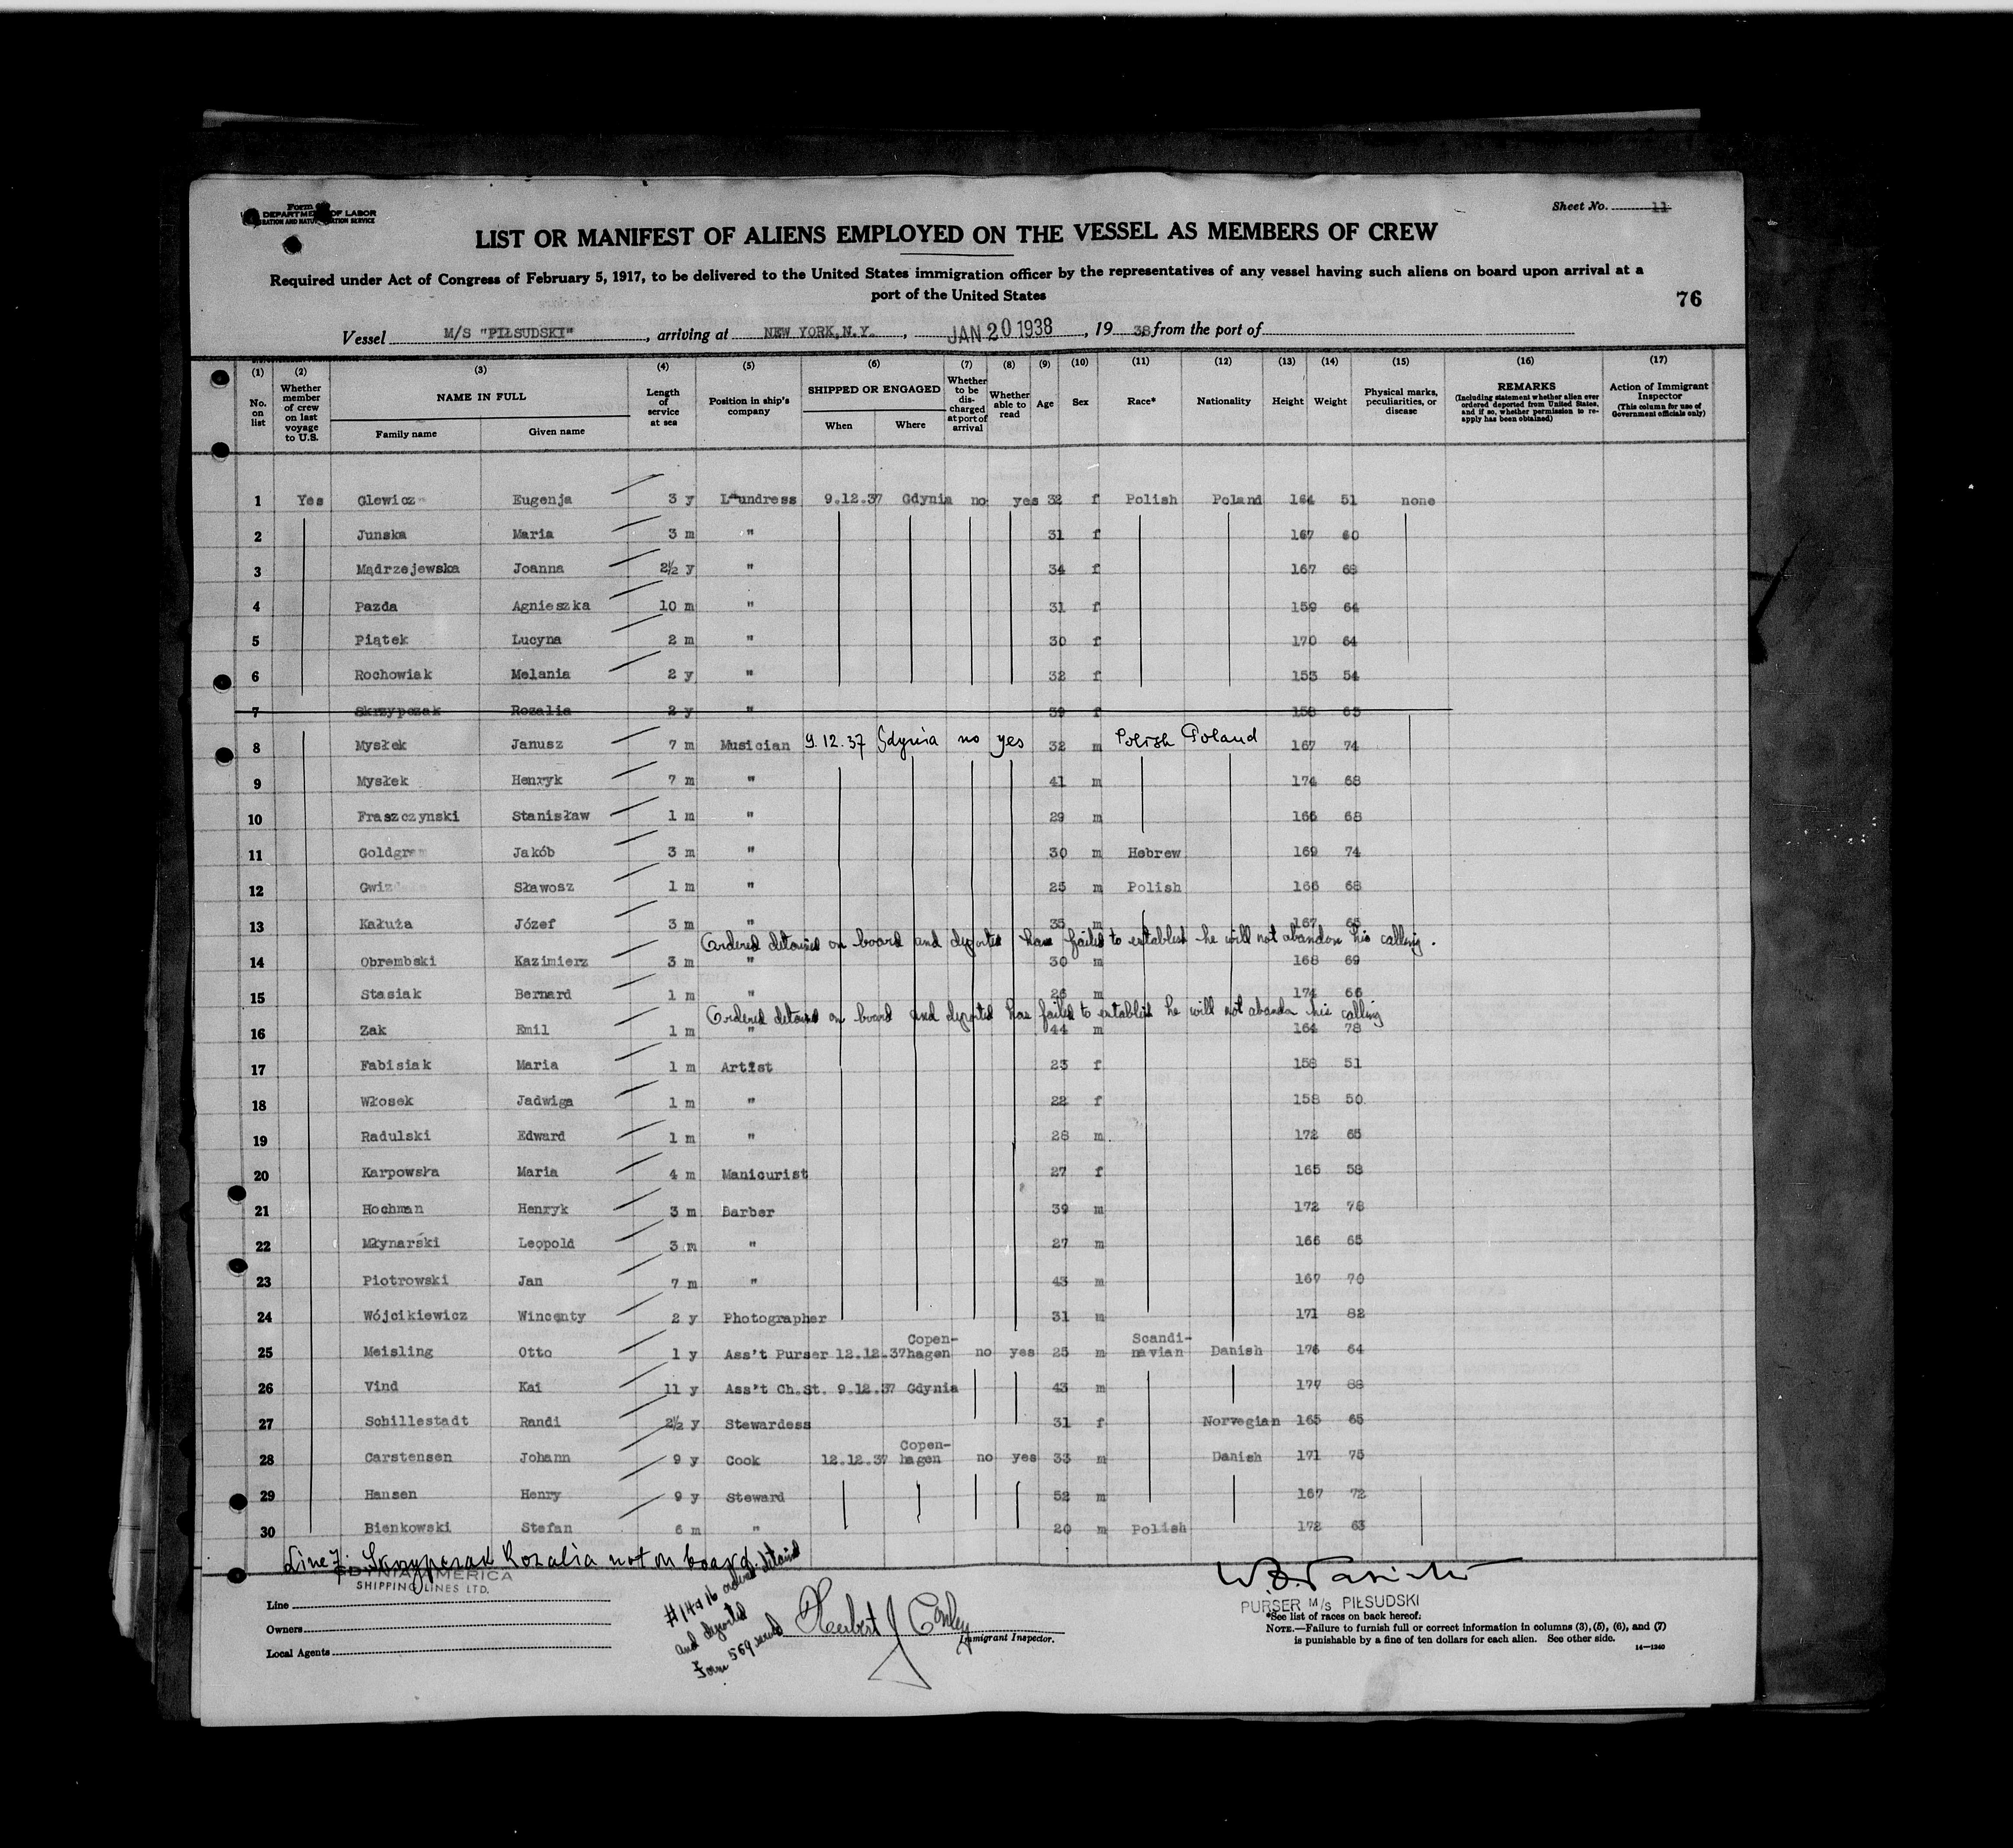 Form
DEPARTMENT OF LABOR
Sheet No. 11
LIST OR MANIFEST OF ALIENS EMPLOYED ON THE VESSEL AS MEMBERS OF CREW
Required under Act of Congress of February 5, 1917, to be delivered to the United States immigration officer by the representatives of any vessel having such aliens on board upon arrival at a
port of the United States
76
Vessel M/S "PIŁSUDSKI", arriving at NEW YORK, N.Y., JAN 20 1938, 19 38 from the port of
(1) (2) (3) (4) (5) (6) (7) (8) (9) (10) (11) (12) (13) (14) (15) (16) (17)
No. on list
Whether member of crew on last voyage to U.S.
NAME IN FULL
Family name
Given name
Length of service at sea
Position in ship's company
SHIPPED OR ENGAGED
When
Where
Whether to be discharged at port of arrival
Whether able to read
Age
Sex
Race*
Nationality
Height
Weight
Physical marks, peculiarities, or disease
REMARKS
(Including statement whether alien ever ordered deported from United States, and if so, whether permission to reapply has been obtained)
Action of Immigrant Inspector
(This column for use of Government officials only)
1 Yes Glewicz Eugenja 3 y Laundress 9.12.37 Gdynia no yes 32 f Polish Poland 164 51 none
2 Junska Maria 3 m " 31 f 167 60
3 Mądrzejewska Joanna 2½ y " 34 f 167 68
4 Pazda Agnieszka 10 m " 31 f 159 64
5 Piątek Lucyna 2 m " 30 f 170 64
6 Rochowiak Melania 2 y " 32 f 153 54
7 Skrzypczak Rozalia 2 y " 39 f 158 65
8 Mysłek Janusz 7 m Musician 9.12.37 Gdynia no yes 32 m Polish Poland 167 74
9 Mysłek Henryk 7 m " 41 m 174 68
10 Fraszczynski Stanisław 1 m " 29 m 166 68
11 Goldgram Jakób 3 m " 30 m Hebrew 169 74
12 Gwiz Sławosz 1 m " 25 m Polish 166 68
13 Kałuża Józef 3 m " 35 m 167 65
Ordered detained on board and deported has failed to establish he will not abandon his calling.
14 Obrembski Kazimierz 3 m " 30 m 168 69
15 Stasiak Bernard 1 m " 26 m 174 66
Ordered detained on board and deported has failed to establish he will not abandon his calling
16 Zak Emil 1 m " 44 m 164 78
17 Fabisiak Maria 1 m Artist 23 f 158 51
18 Włosek Jadwiga 1 m " 22 f 158 50
19 Radulski Edward 1 m " 28 m 172 65
20 Karpowska Maria 4 m Manicurist 27 f 165 58
21 Hochman Henryk 3 m Barber 39 m 172 78
22 Młynarski Leopold 3 m " 27 m 166 65
23 Piotrowski Jan 7 m " 43 m 167 70
24 Wójcikiewicz Wincenty 2 y Photographer 31 m 171 82
25 Meisling Otto 1 y Ass't Purser 12.12.37 Copen-hagen no yes 25 m Scandi-navian Danish 176 64
26 Vind Kai 11 y Ass't Ch.St. 9.12.37 Gdynia 43 m 177 88
27 Schillestadt Randi 2½ y Stewardess 31 f Norwegian 165 65
28 Carstensen Johann 9 y Cook 12.12.37 Copen-hagen no yes 33 m Danish 171 75
29 Hansen Henry 9 y Steward 52 m 167 72
30 Bienkowski Stefan 6 m " 20 m Polish 172 63
Line 7. Skrzypczak Rozalia not on board.
GDYNIA AMERICA
SHIPPING LINES LTD.
Line
Owners
Local Agents
#14 & 16 ordered detained
and deported
Form 569 served
Herbert J Conley
Immigrant Inspector.
PURSER M/s PIŁSUDSKI
*See list of races on back hereof.
NOTE.—Failure to furnish full or correct information in columns (3), (5), (6), and (7)
is punishable by a fine of ten dollars for each alien. See other side.
14—1240